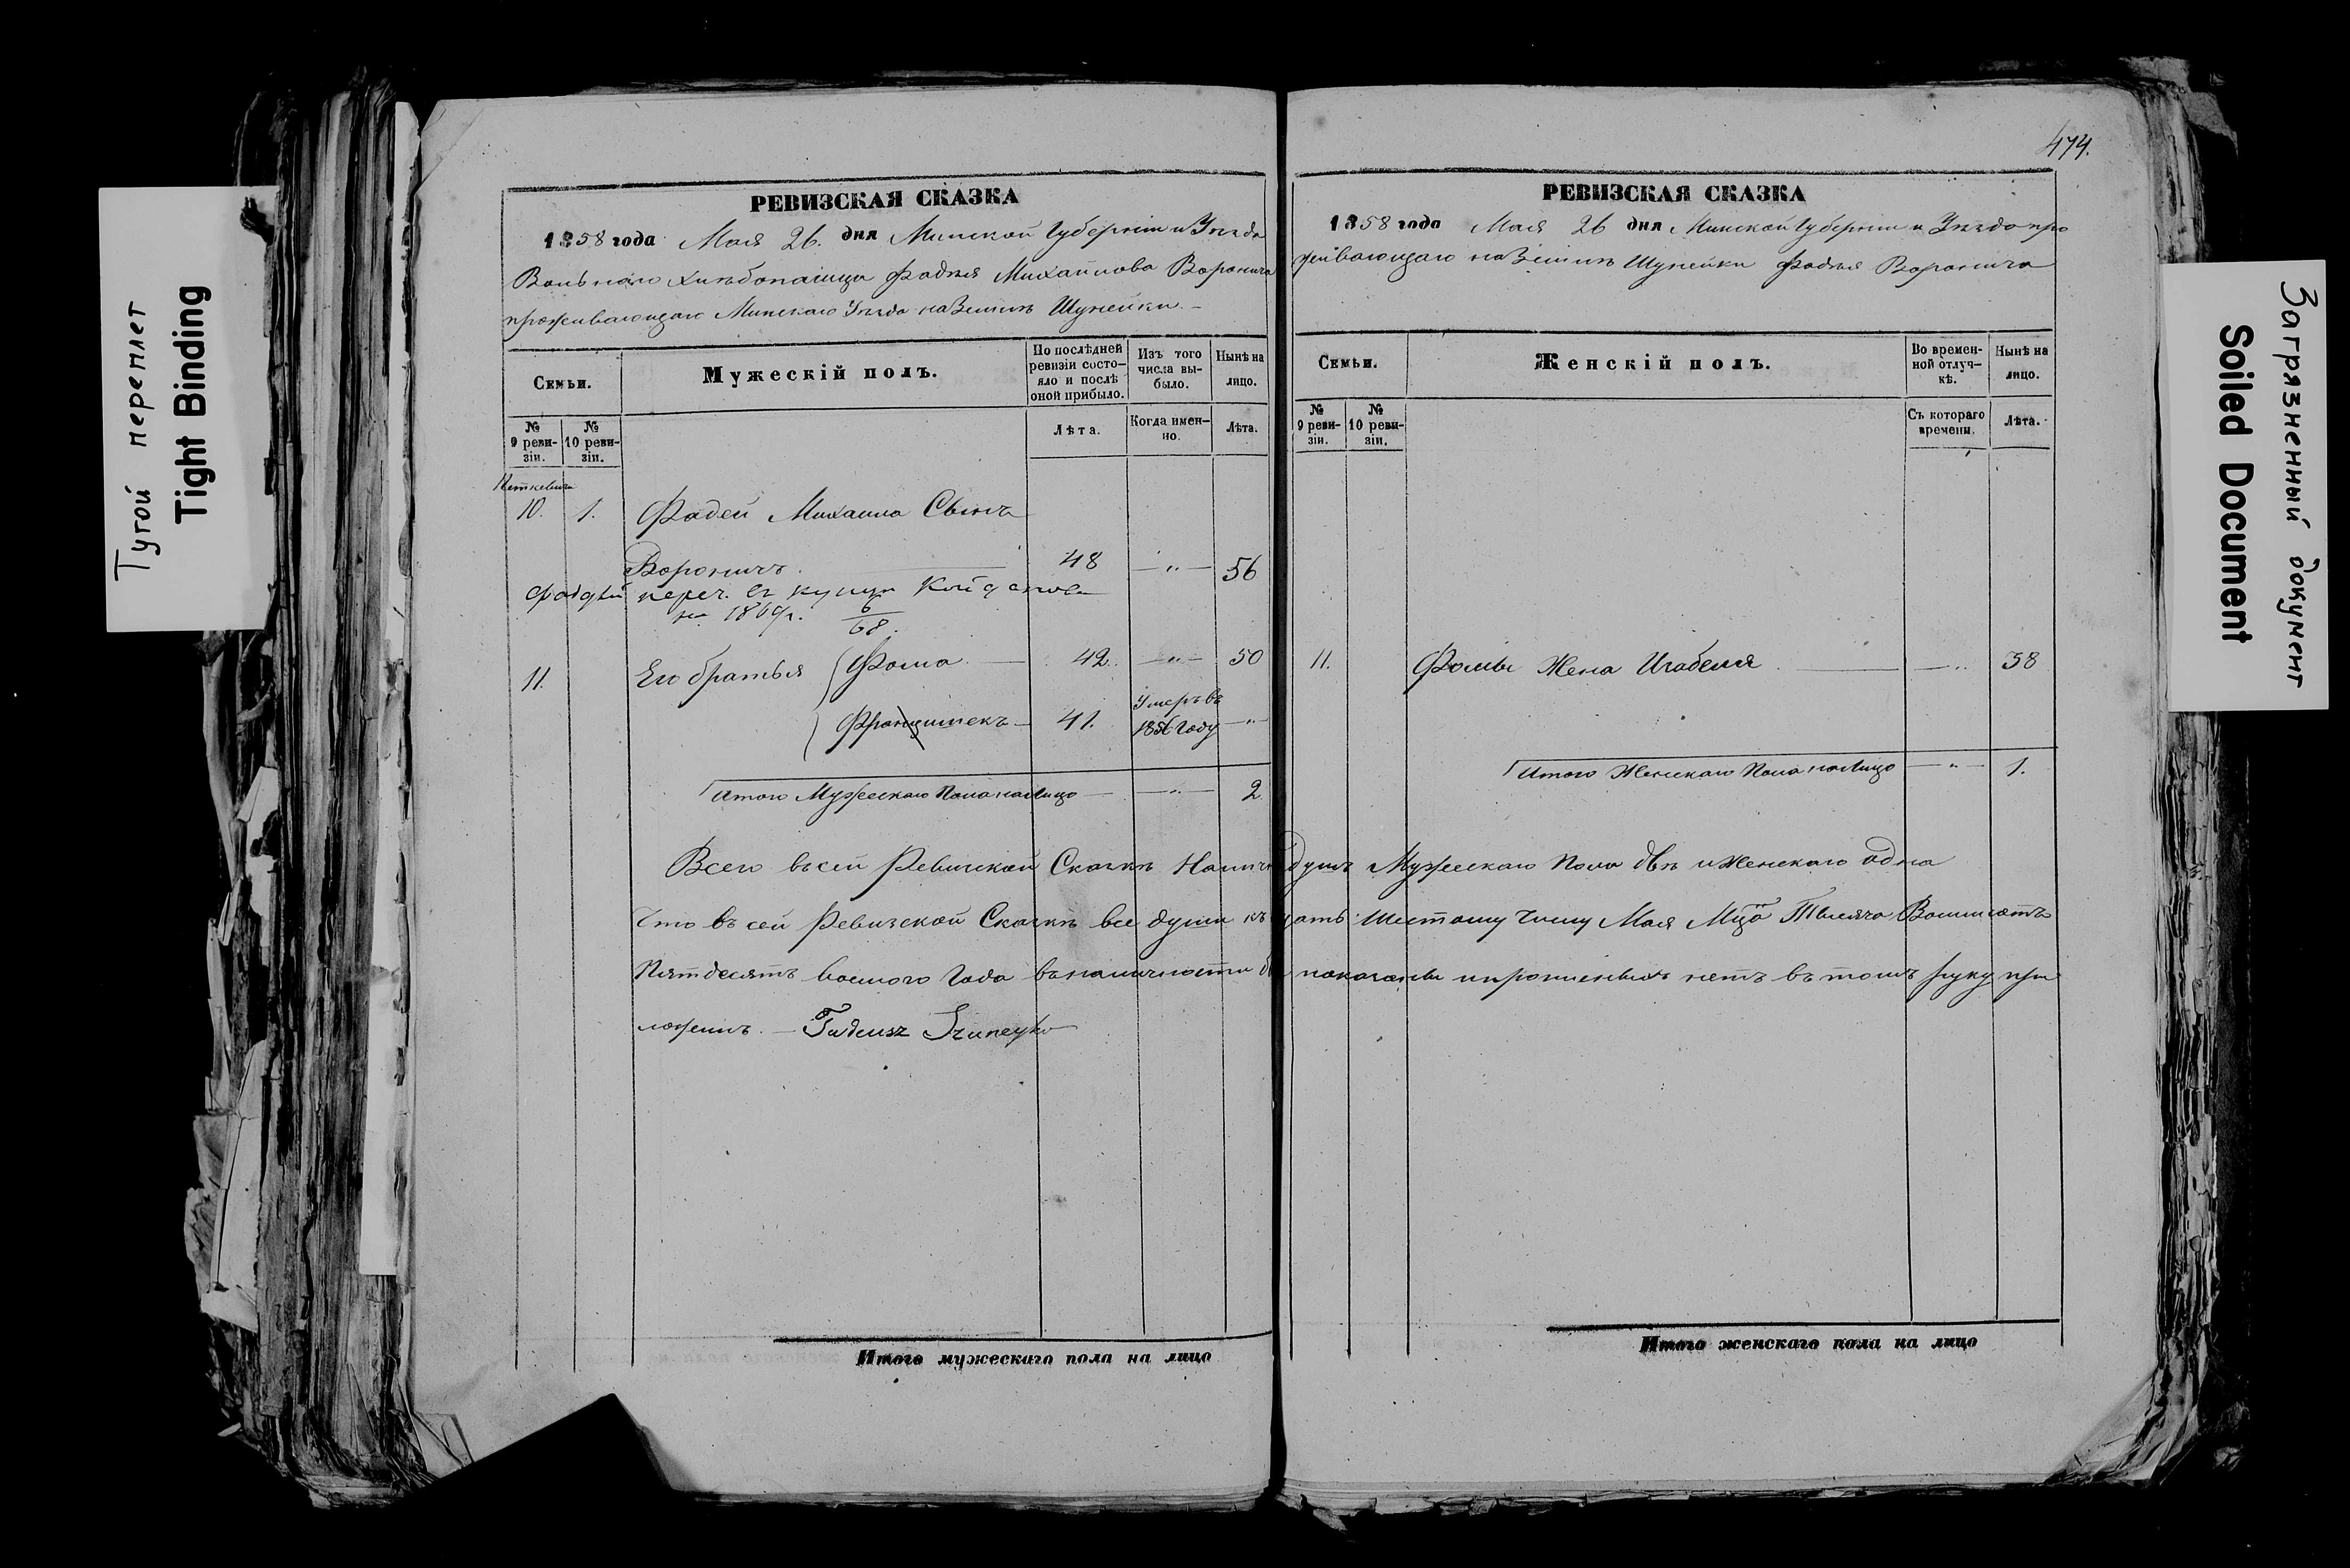 Тугой переплет
Tight Binding
РЕВИЗСКАЯ СКАЗКА
1858 года Мая 26. дня Минской Губерніи и Уѣзда
Вольнаго хлѣбопашца Фадѣя Михайлова Воронича
проживающаго Минскаго Уѣзда на Землѣ Шунейки. –
Семьи.
Мужескій полъ.
По послѣдней ревизіи состояло и послѣ оной прибыло.
Изъ того числа выбыло.
Нынѣ на лицо.
№ 9 ревизіи.
№ 10 ревизіи.
Лѣта.
Когда именно.
Лѣта.
10. 1. Фадей Михаила Сынъ
Вороничъ. 48 — " — 56
Фадѣй переч. въ купцы Койданова
на 1869г. 6/68.
11. Его братья Фома. — 42. — " — 50
Францишекъ — 41. Умеръ въ 1856 Году — " —
Итого Мужескаго Пола на Лицо — — " — 2.
Итого мужескаго пола на лицо
474.
РЕВИЗСКАЯ СКАЗКА
1858 года Мая 26 дня Минской Губерніи и Уѣзда про
живающаго на Землѣ Шунейки Фадѣя Воронича
Семьи.
Женскій полъ.
Во временной отлучкѣ.
Нынѣ на лицо.
№ 9 ревизіи.
№ 10 ревизіи.
Съ котораго времени.
Лѣта.
11. Фомы Жена Изабеля — — " 38
Итого Женскаго Пола на Лицо — " — 1.
Всего въ сей Ревизской Сказкѣ душъ Мужескаго Пола двѣ и Женскаго одна
Что въ сей Ревизской Сказкѣ все души къ Шестому Числу Мая Мца Тысяча Восимсотъ
Пятдесятъ восмого Года въ наличности показаны и прописныхъ нетъ въ томъ руку при
ложилъ. — Tadeusz Szuneyko
Итого женскаго пола на лицо
Загрязненный документ
Soiled Document